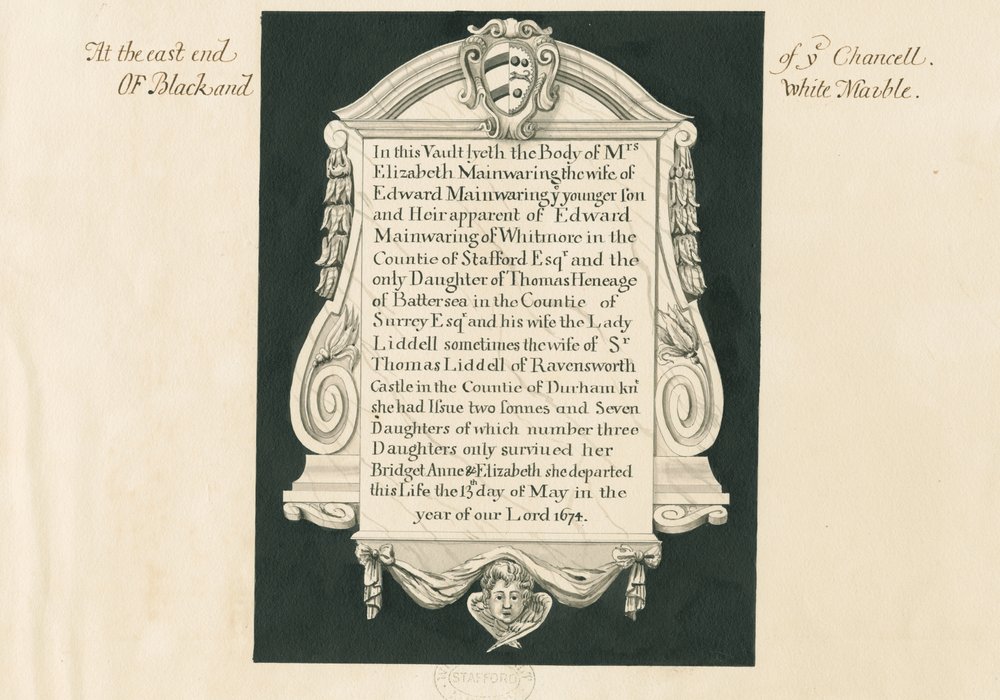 At the east end of yᵉ Chancell.
OF Black and White Marble.
In this Vault lyeth the Body of Mʳˢ
Elizabeth Mainwaring the wife of
Edward Mainwaring yᵉ younger ſon
and Heir apparent of Edward
Mainwaring of Whitmore in the
Countie of Stafford Esqʳ and the
only Daughter of Thomas Heneage
of Battersea in the Countie of
Surrey Esqʳ and his wife the Lady
Liddell sometimes the wife of Sʳ
Thomas Liddell of Ravensworth
Castle in the Countie of Durham knᵗ
she had Iſsue two ſonnes and Seven
Daughters of which number three
Daughters only survived her
Bridget Anne & Elizabeth she departed
this Life the 13ᵗʰ day of May in the
year of our Lord 1674.
STAFFORD